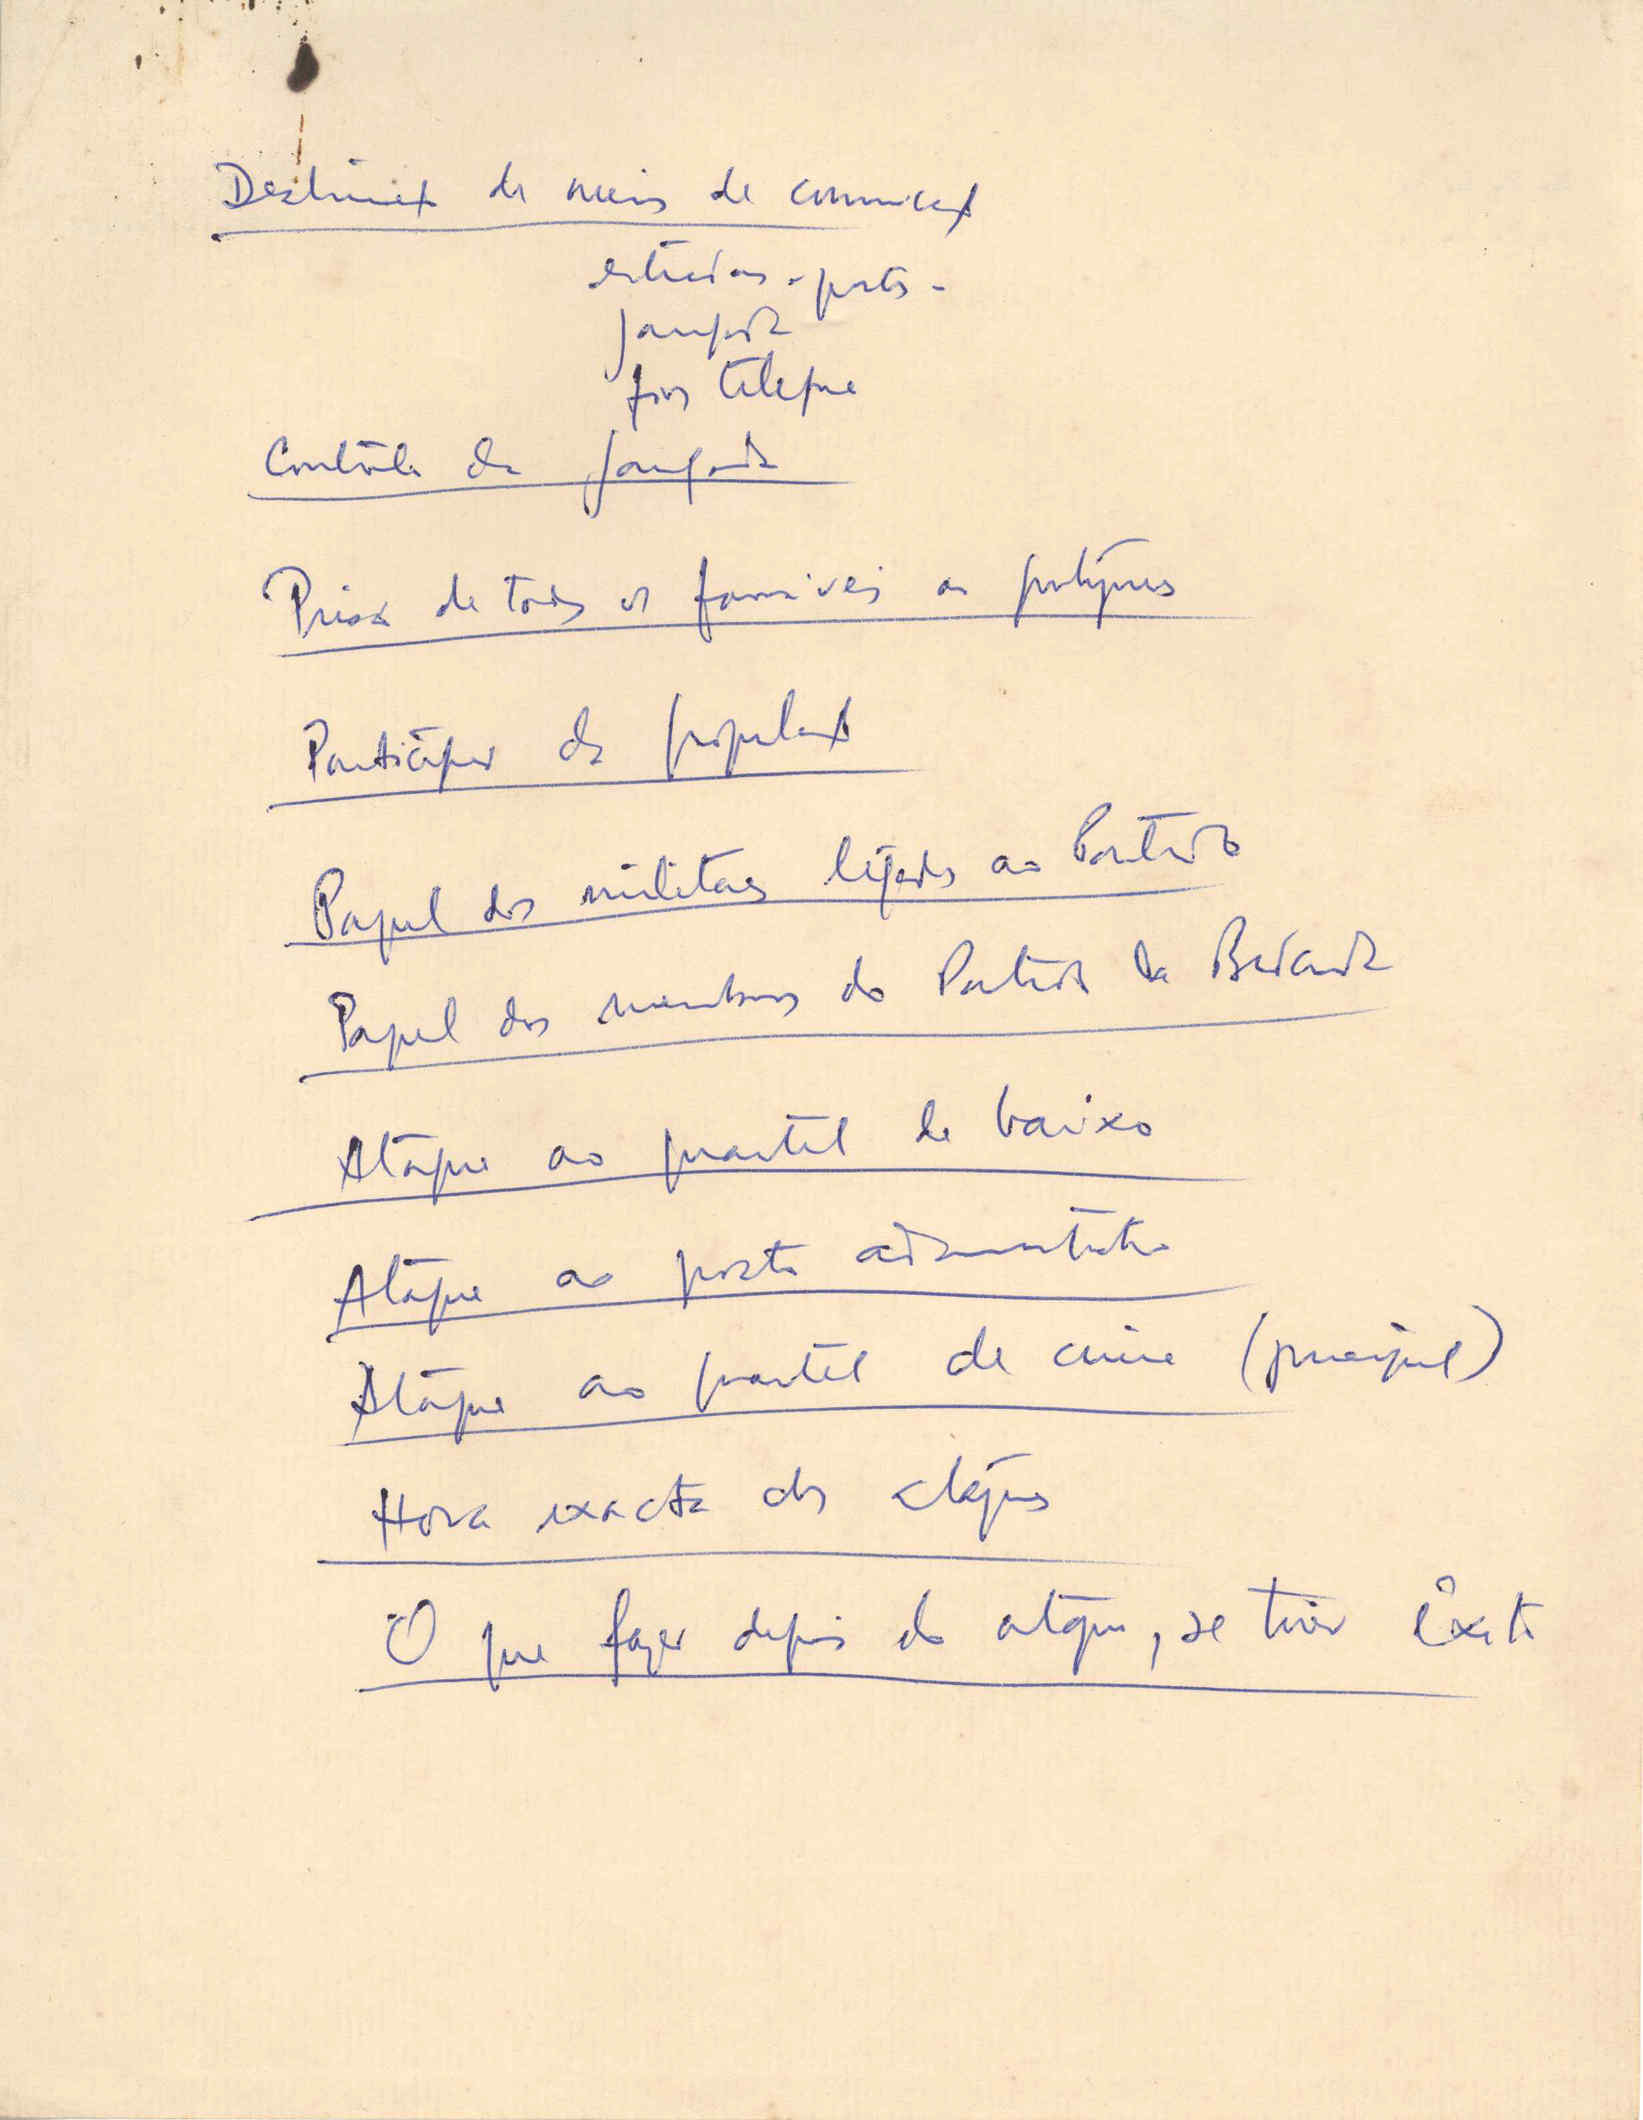 Destruição de meios de comunicação
estradas - pontes -
jangada
fios telefone
Contrôle da jangada
Prisão de todos os favoráveis aos portugueses
Participação da população
Papel dos militares ligados ao Partido
Papel dos membros do Partido da
Ataque ao quartel de baixo
Ataque ao posto administrativo
Ataque ao quartel de cima (principal)
Hora exacta dos ataques
O que fazer depois do ataque, se tiver êxito